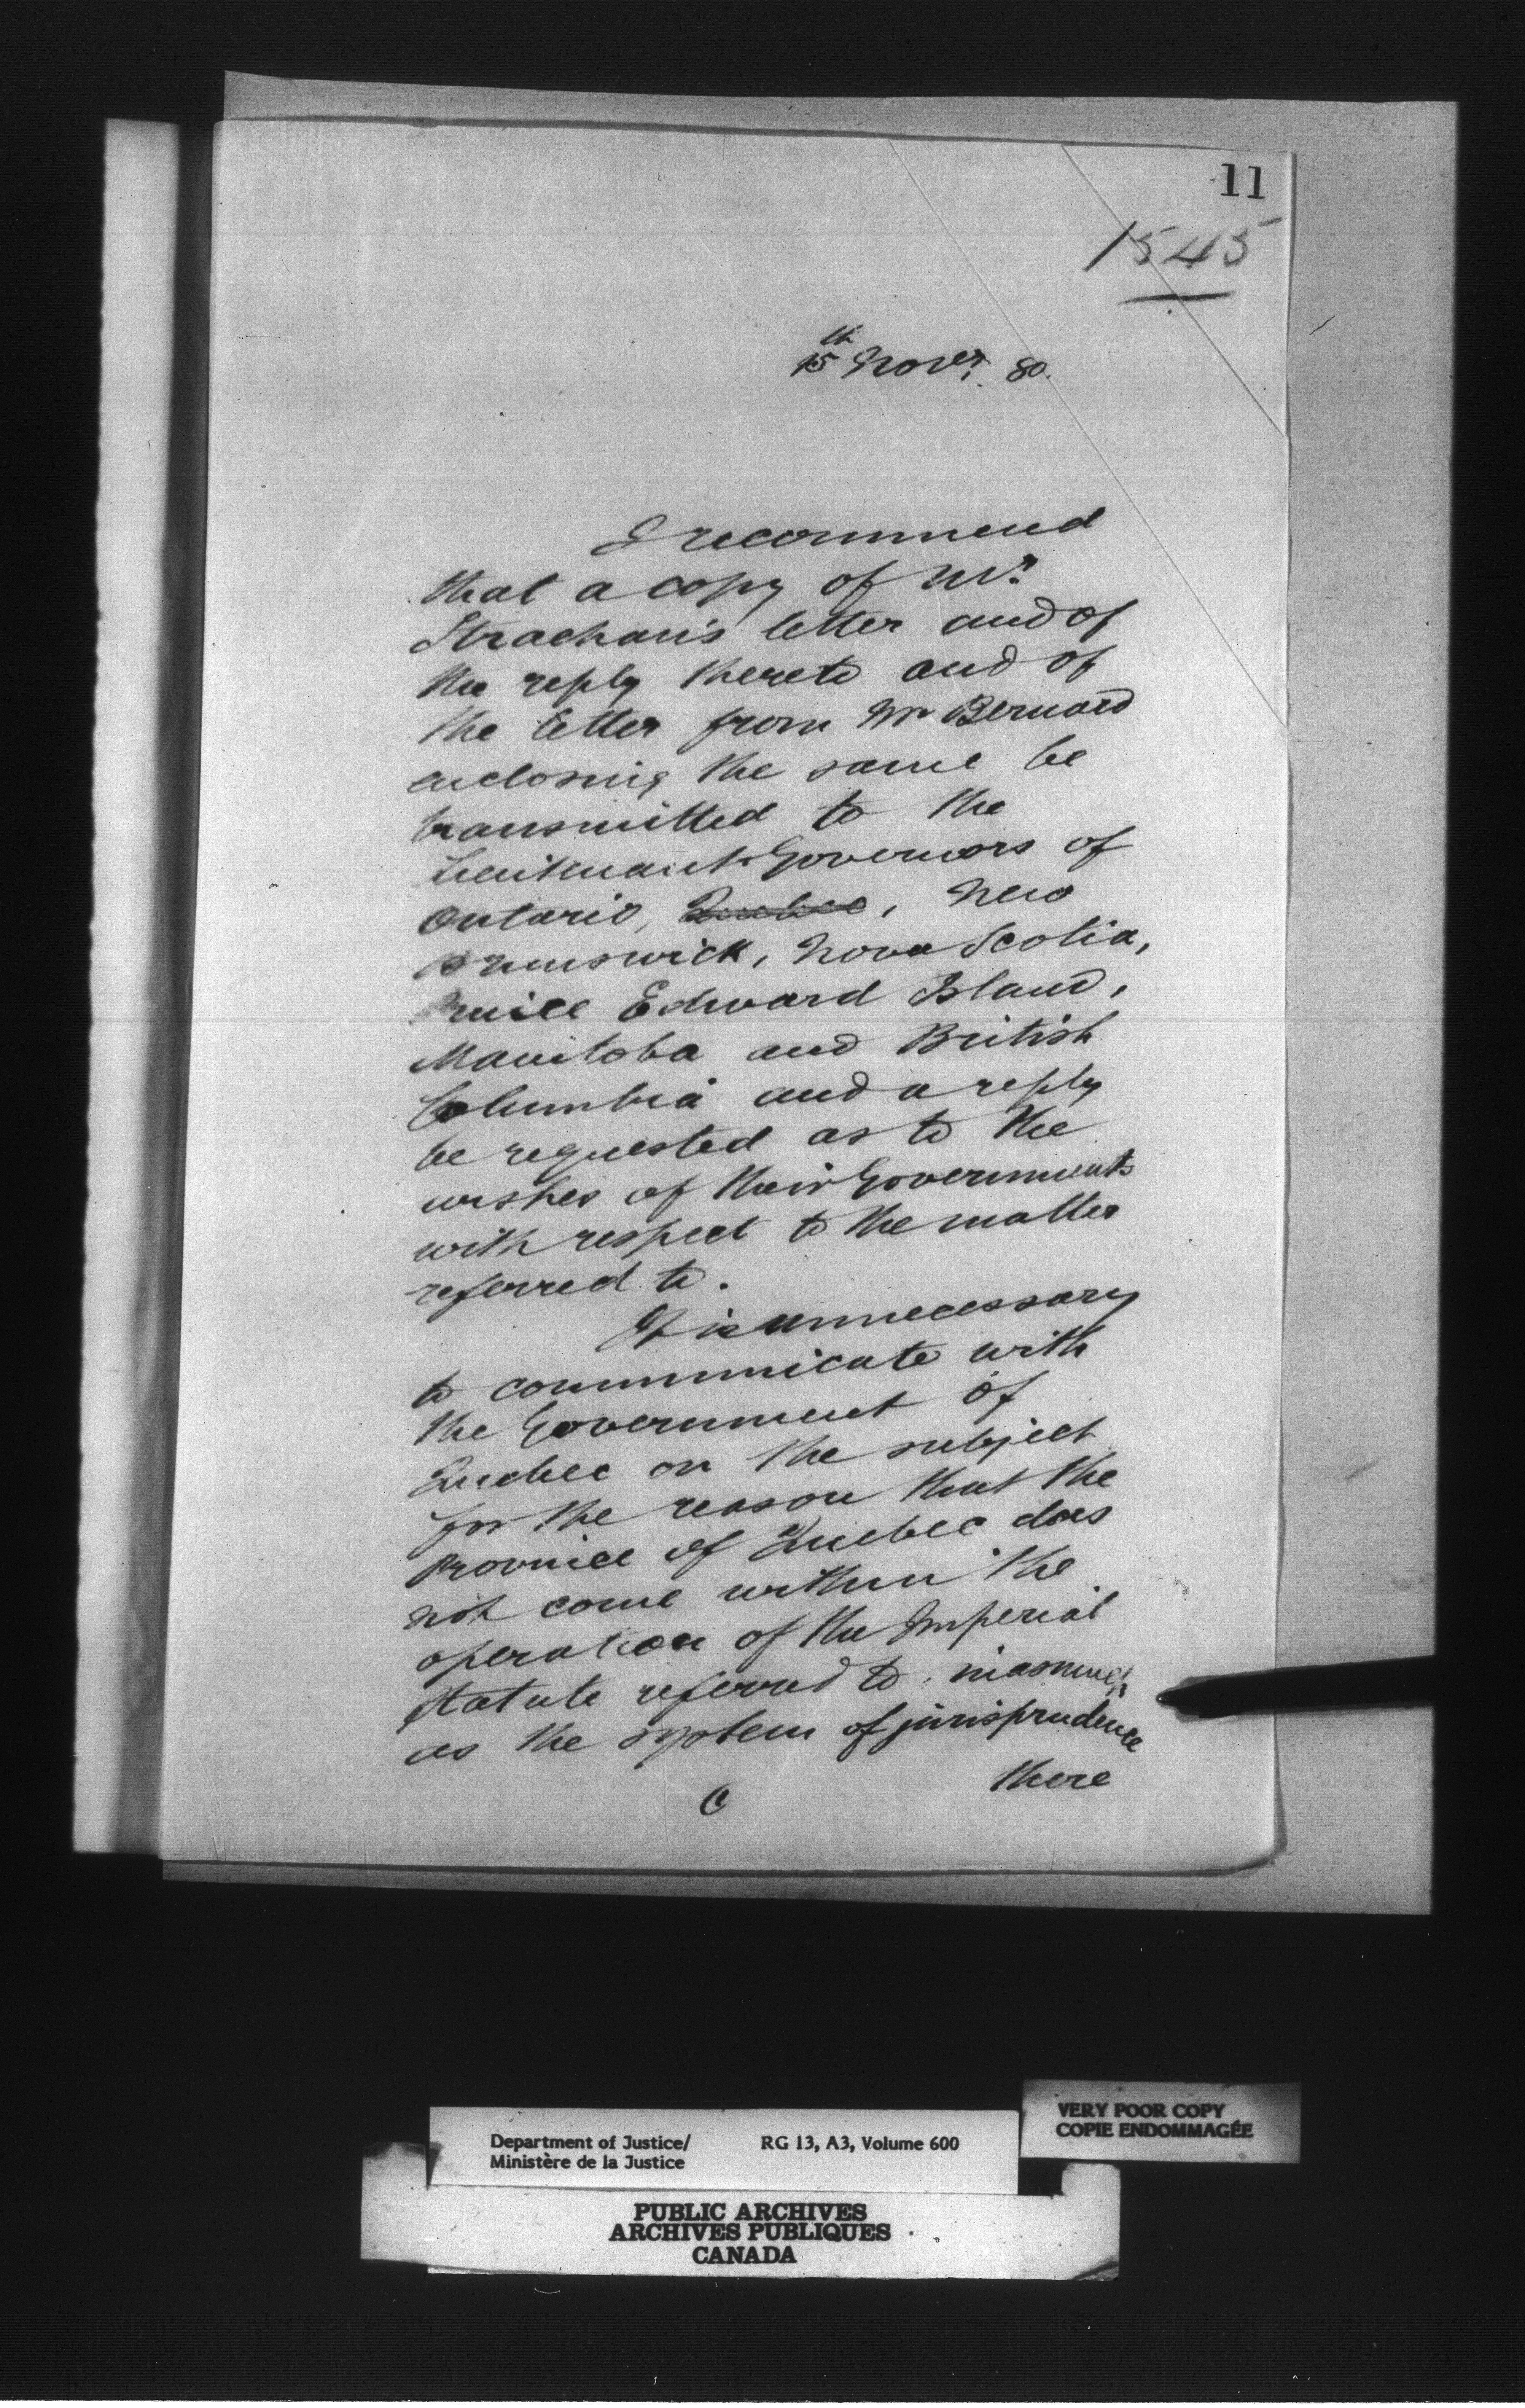 11
1545
15th Novr. 80.
I recommend
that a copy of Mr.
Strachan's letter and of
the reply thereto and of
the letter from Mr Bernard
enclosing the same be
transmitted to the
Lieutenant Governors of
Ontario, Quebec, New
Brunswick, Nova Scotia,
Prince Edward Island,
Manitoba and British
Columbia and a reply
be requested as to the
wishes of their Governments
with respect to the matter
referred to.
It is unnecessary
to communicate with
the Government of
Quebec on the subject
for the reason that the
Province of Quebec does
not come within the
operation of the Imperial
Statute referred to, inasmuch
as the system of jurisprudence
there
C
VERY POOR COPY
COPIE ENDOMMAGÉE
Department of Justice/ RG 13, A3, Volume 600
Ministère de la Justice
PUBLIC ARCHIVES
ARCHIVES PUBLIQUES
CANADA